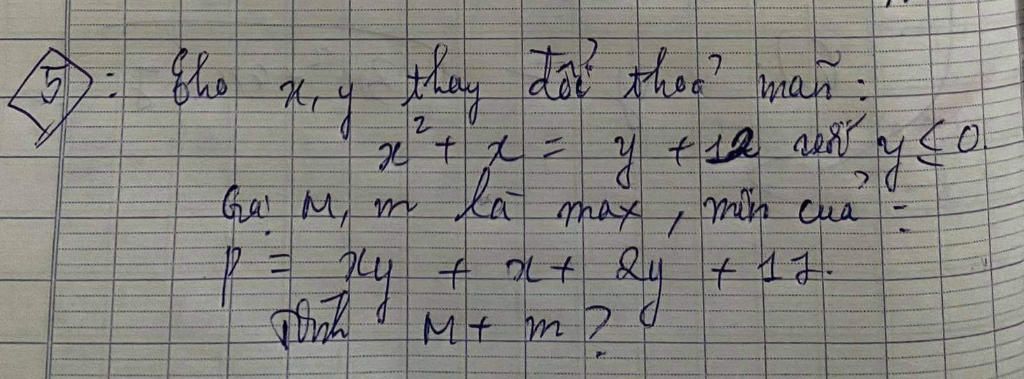 5: Cho x, y thay đổi thoả mãn:
x² + x = y + 12 với y ≤ 0
Gọi M, m là max, min của:
P = xy + x + 2y + 17.
Tính M + m?